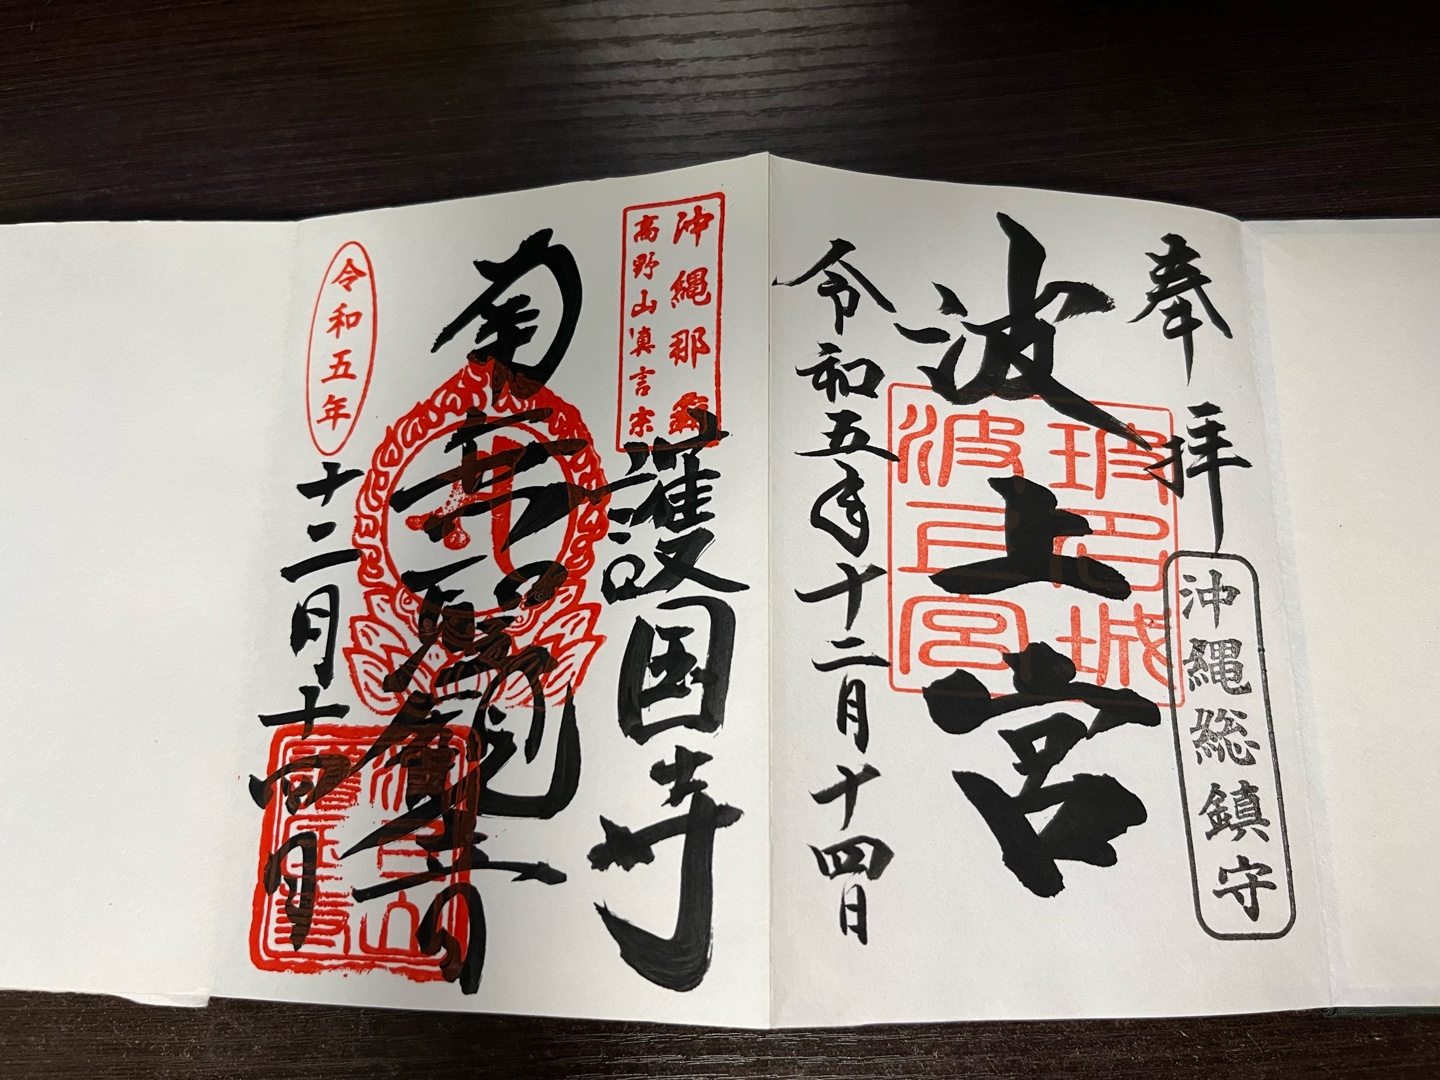 奉拝
沖縄総鎮守
波上宮
玻名城
波上宮
令和五年十二月十四日
沖縄那覇
高野山真言宗
護国寺
南無聖観音
令和五年
十二月十四日